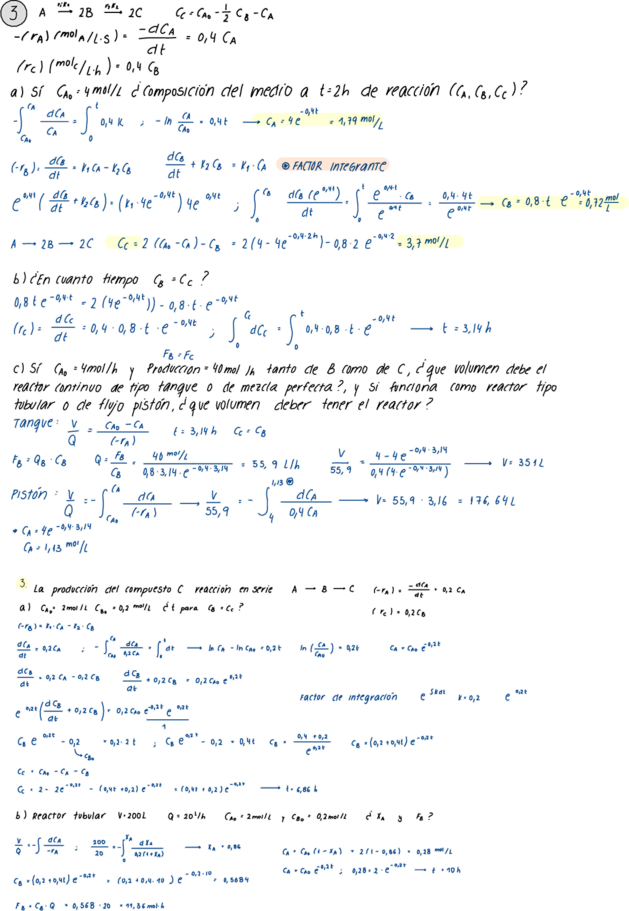 3 A →(r₁k₁) 2B →(r₂k₂) 2C C_C = C_A₀ - 1/2 C_B - C_A
-(r_A) (mol_A/L·s) = -dC_A/dt = 0,4 C_A
(r_C) (mol_C/L·h) = 0,4 C_B
a) Sí C_A₀ = 4 mol/L ¿Composición del medio a t=2h de reacción (C_A, C_B, C_C)?
-∫_{C_A₀}^{C_A} dC_A/C_A = ∫_0^t 0,4 K ; -ln C_A/C_A₀ = 0,4t → C_A = 4e^{-0,4t} = 1,79 mol/L
(-r_B) = dC_B/dt = K₁C_A - K₂C_B dC_B/dt + K₂C_B = K₁·C_A FACTOR INTEGRANTE
e^{0,4t} (dC_B/dt + K₂C_B) = (K₁·4e^{-0,4t}) 4e^{0,4t} ; ∫_0^{C_B} dC_B (e^{0,4t})/dt = ∫_0^t e^{0,4·t}·C_B/e^{0,4t} = 0,4·4t/e^{0,4t} → C_B = 0,8·t e^{-0,4t} = 0,72 mol/L
A → 2B → 2C C_C = 2 (C_A₀ - C_A) - C_B = 2(4 - 4e^{-0,4·2h}) - 0,8·2 e^{-0,4·2} = 3,7 mol/L
b) ¿En cuanto tiempo C_B = C_C ?
0,8 t e^{-0,4·t} = 2 (4e^{-0,4t})) - 0,8·t·e^{-0,4t}
(r_C) = dC_C/dt = 0,4·0,8·t·e^{-0,4t} ; ∫_0^{C_C} dC_C = ∫_0^t 0,4·0,8·t·e^{-0,4t} → t = 3,14 h
F_B = F_C
c) Sí C_A₀ = 4mol/h y Producción = 40 mol /h tanto de B como de C, ¿que volumen debe el
reactor continuo de tipo tanque o de mezcla perfecta?, y si funciona como reactor tipo
tubular o de flujo pistón, ¿que volumen deber tener el reactor?
Tanque: V/Q = C_A₀ - C_A/(-r_A) t = 3,14h C_C = C_B
F_B = Q_B·C_B Q = F_B/C_B = 40 mol/L/0,8·3,14·e^{-0,4·3,14} = 55,9 L/h V/55,9 = 4 - 4e^{-0,4·3,14}/0,4(4·e^{-0,4·3,14}) → V = 351 L
Pistón: V/Q = -∫_{C_A₀}^{C_A} dC_A/(-r_A) → V/55,9 = -∫_4^{1,13} dC_A/0,4C_A → V = 55,9·3,16 = 176,64 L
* C_A = 4e^{-0,4·3,14}
C_A = 1,13 mol/L
3. La producción del compuesto C reacción en serie A → B → C (-r_A) = -dC_A/dt = 0,2 C_A
a) C_A₀ = 2mol/L C_B₀ = 0,2 mol/L ¿t para C_B = C_C ? (r_C) = 0,2C_B
(-r_B) = K₁·C_A - K₂·C_B
dC_A/dt = 0,2C_A ; -∫_{C_A₀}^{C_A} dC_A/0,2C_A = ∫^t dt → ln C_A - ln C_A₀ = 0,2t ln (C_A/C_A₀) = 0,2t C_A = C_A₀ e^{-0,2t}
dC_B/dt = 0,2 C_A - 0,2 C_B dC_B/dt + 0,2 C_B = 0,2C_A₀ e^{0,2t}
Factor de integración e^{∫Kdt} K = 0,2 e^{0,2t}
e^{0,2t} (dC_B/dt + 0,2 C_B) = 0,2C_A₀ e^{-0,2t} e^{0,2t}
1
C_B e^{0,2t} - 0,2 = 0,2·2t ; C_B e^{0,2t} - 0,2 = 0,4t C_B = 0,4 + 0,2/e^{0,2t} C_B = (0,2 + 0,4t) e^{-0,2t}
C_B₀
C_C = C_A₀ - C_A - C_B
C_C = 2 - 2e^{-0,2t} - (0,4t + 0,2) e^{-0,2t} = (0,4t + 0,2) e^{-0,2t} → t = 6,86 h
b) Reactor tubular V = 200L Q = 20 L/h C_A₀ = 2mol/L y C_B₀ = 0,2mol/L ¿ X_A y F_B ?
V/Q = -∫ dC_A/-r_A ; 200/20 = -∫_0^{X_A} dX_A/0,2(1+X_A) → X_A = 0,86 C_A = C_A₀ (1 - X_A) = 2(1 - 0,86) = 0,28 mol/L
C_A = C_A₀ e^{-0,2t} ; 0,28 = 2·e^{-0,2t} → t = 10h
C_B = (0,2 + 0,4t) e^{-0,2t} = (0,2 + 0,4·10) e^{-0,2·10} = 0,5684
F_B = C_B·Q = 0,568·20 = 11,36 mol·h